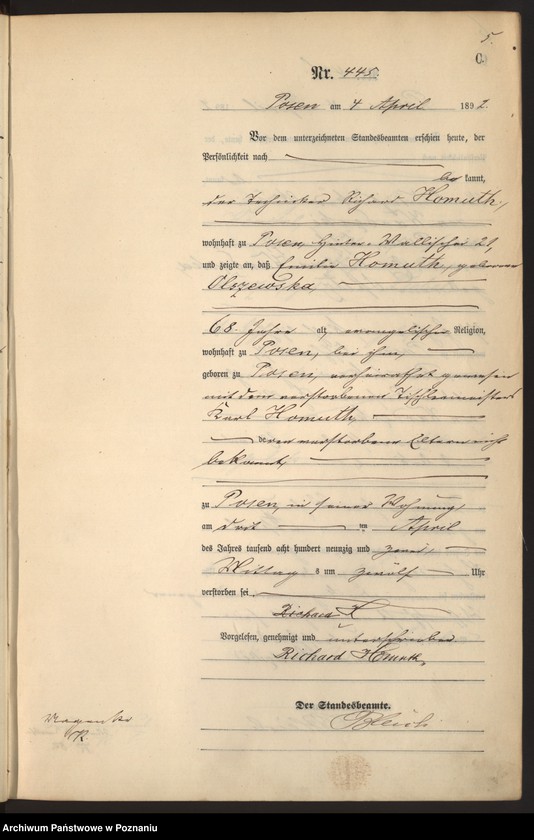 5.
C.
Nr. 445.
Posen am 4 April 1892.
Vor dem unterzeichneten Standesbeamten erschien heute, der
Persönlichkeit nach
be kannt,
der Techniker Richard Homuth,
wohnhaft zu Posen, Hinter-Wallischei 21,
und zeigte an, daß Emilie Homuth, geborene
Olszewska,
68 Jahre alt, evangelischer Religion,
wohnhaft zu Posen, bei ihm,
geboren zu Posen, verheirathet gewesen
mit dem verstorbenen Tischlermeister
Karl Homuth,
deren verstorbene Eltern nicht
bekannt,
zu Posen, in seiner Wohnung,
am drit ten April
des Jahres tausend acht hundert neunzig und zwei,
Mittag s um zwölf Uhr
verstorben sei.
Richard H
Vorgelesen, genehmigt und unterschrieben
Richard Homuth
Der Standesbeamte.
Archiwum Państwowe w Poznaniu